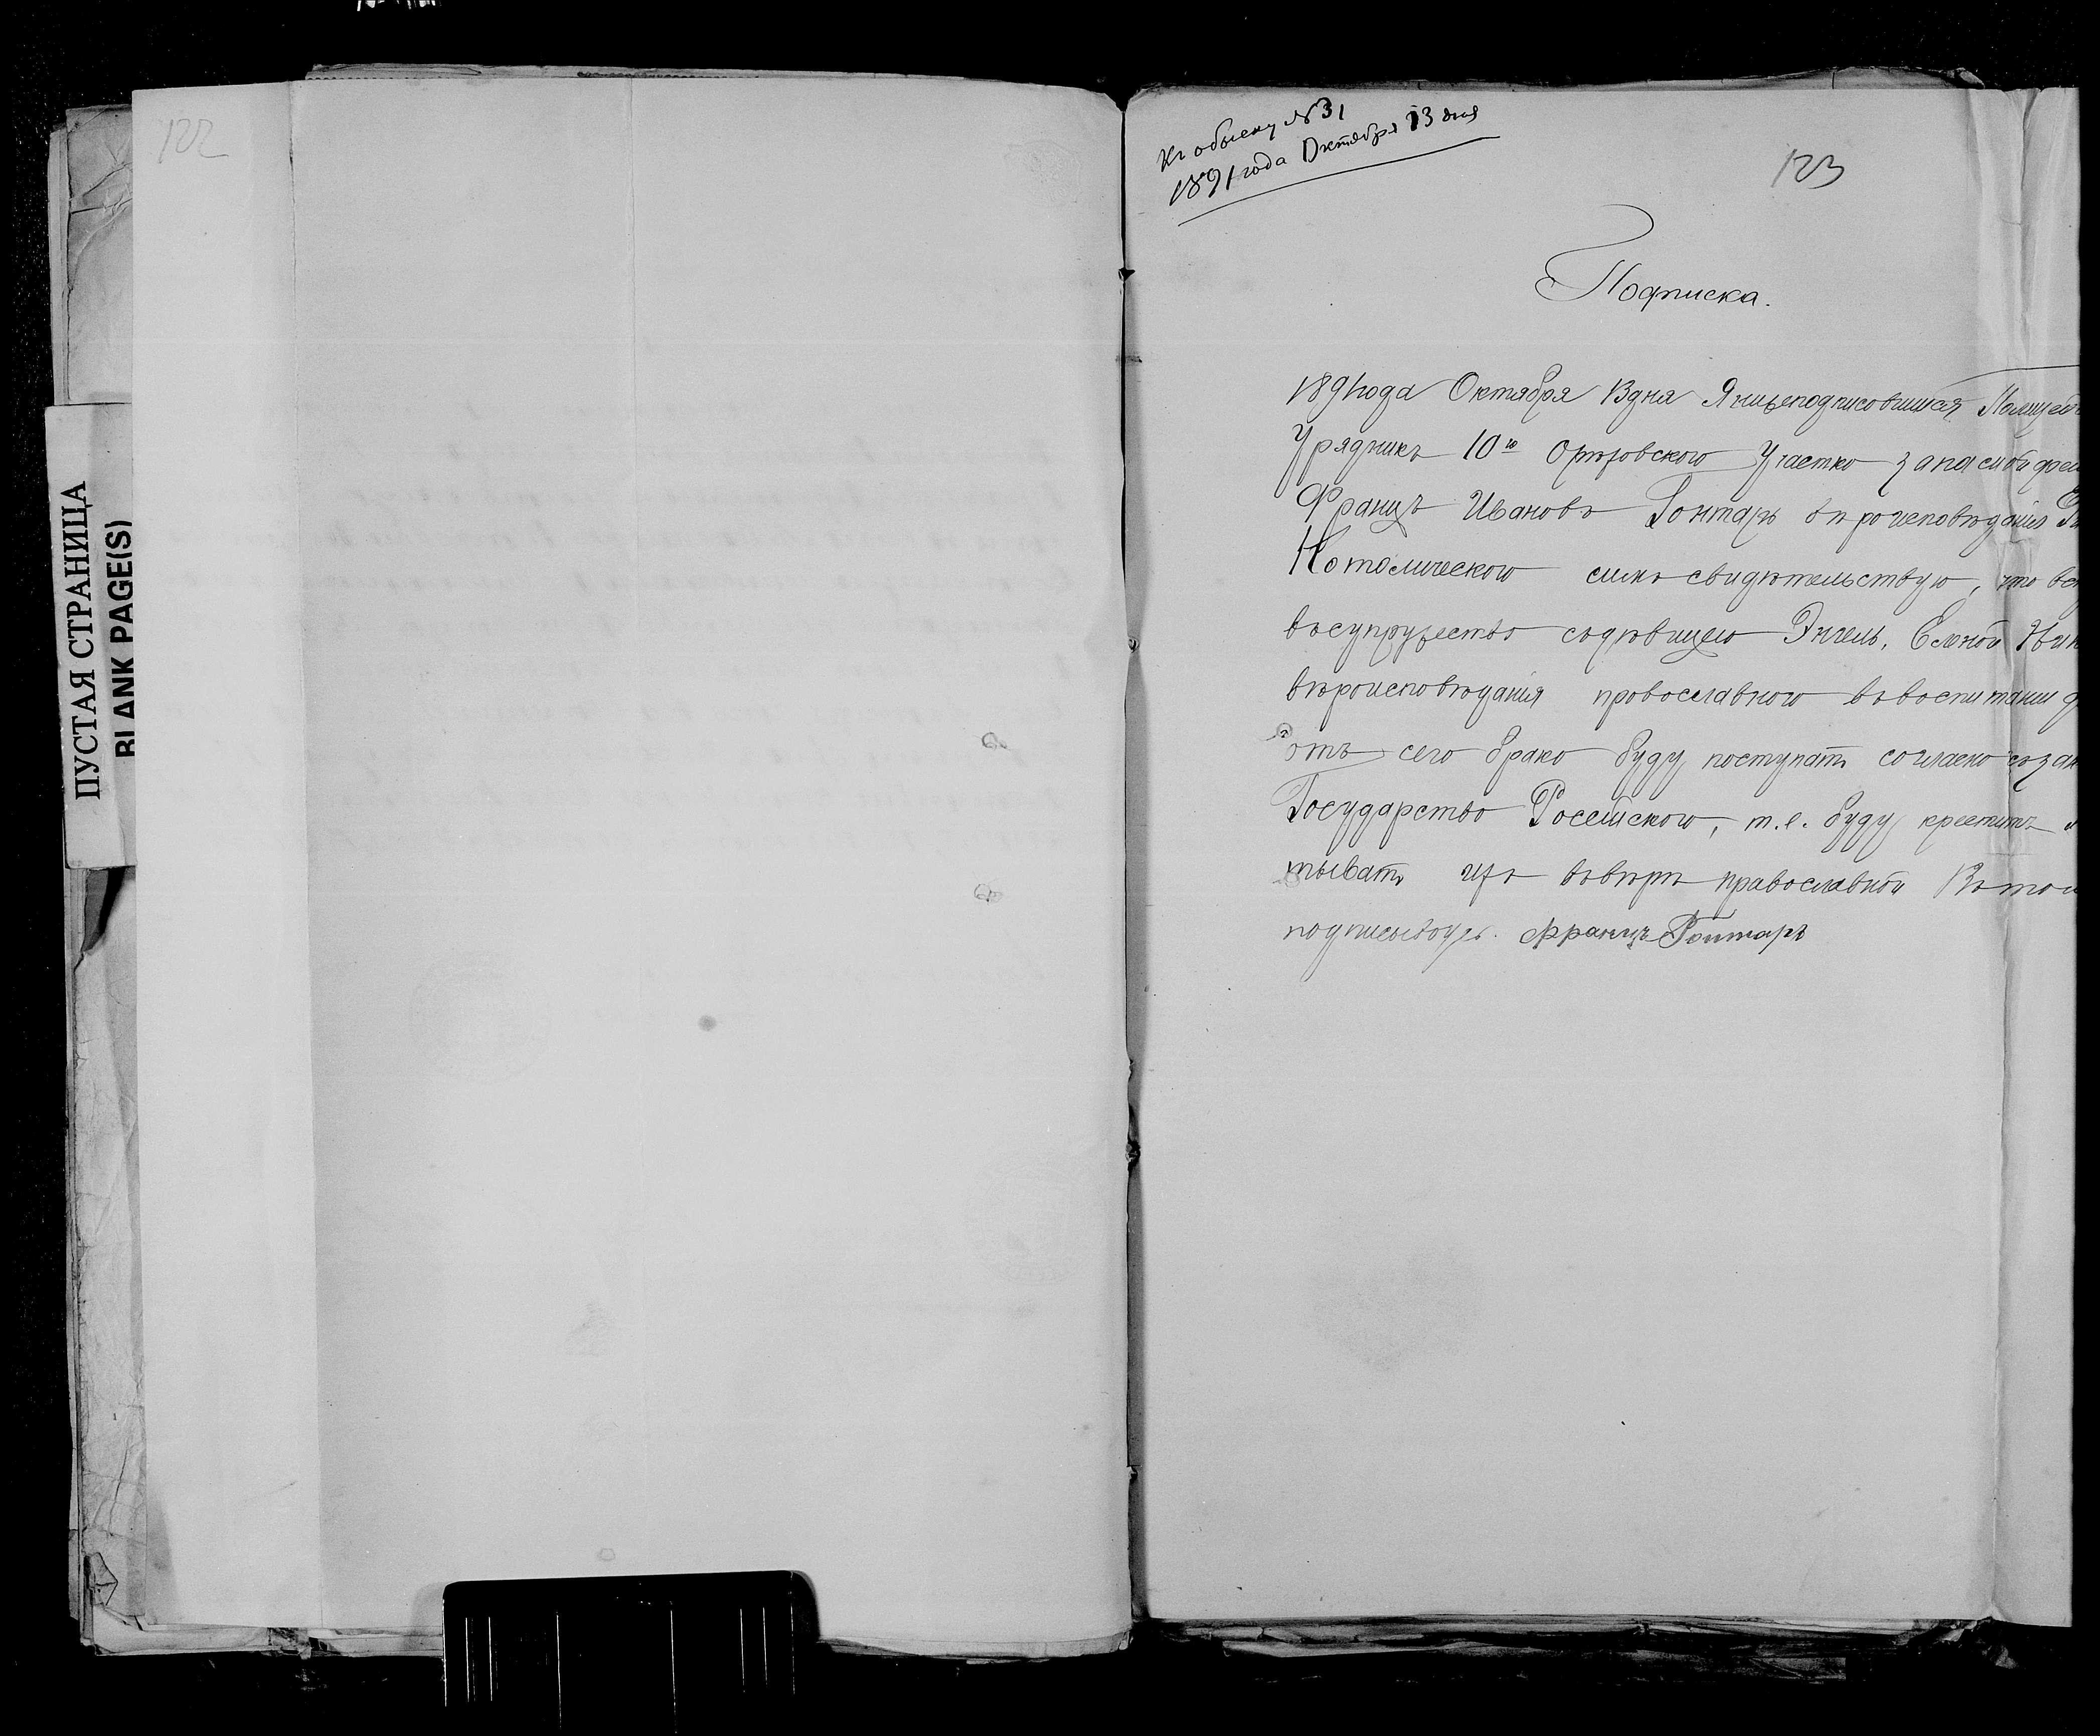 122
ПУСТАЯ СТРАНИЦА
BLANK PAGE(S)
Къ обыску №31
1891 года Октября 13 дня
123
Подписка.
1891 года Октября 13 дня Я нижеподписовшийся Полицей
Урядникъ 10го Орѣховского Участко запасной
Францъ Ивановъ Гонтарь вѣроисповѣданія
Католического симъ свидѣтельствую, что
въсупружество съдѣвицею Энгель, Еленой
вѣроисповѣданія провославного въвоспитании
отъ сего брако буду поступать согласно съзак
Государство Росейского, т.е. буду крестить
тывать ихъ въвѣрѣ православной Въ том
подписываюсь. Францъ Гонтарь